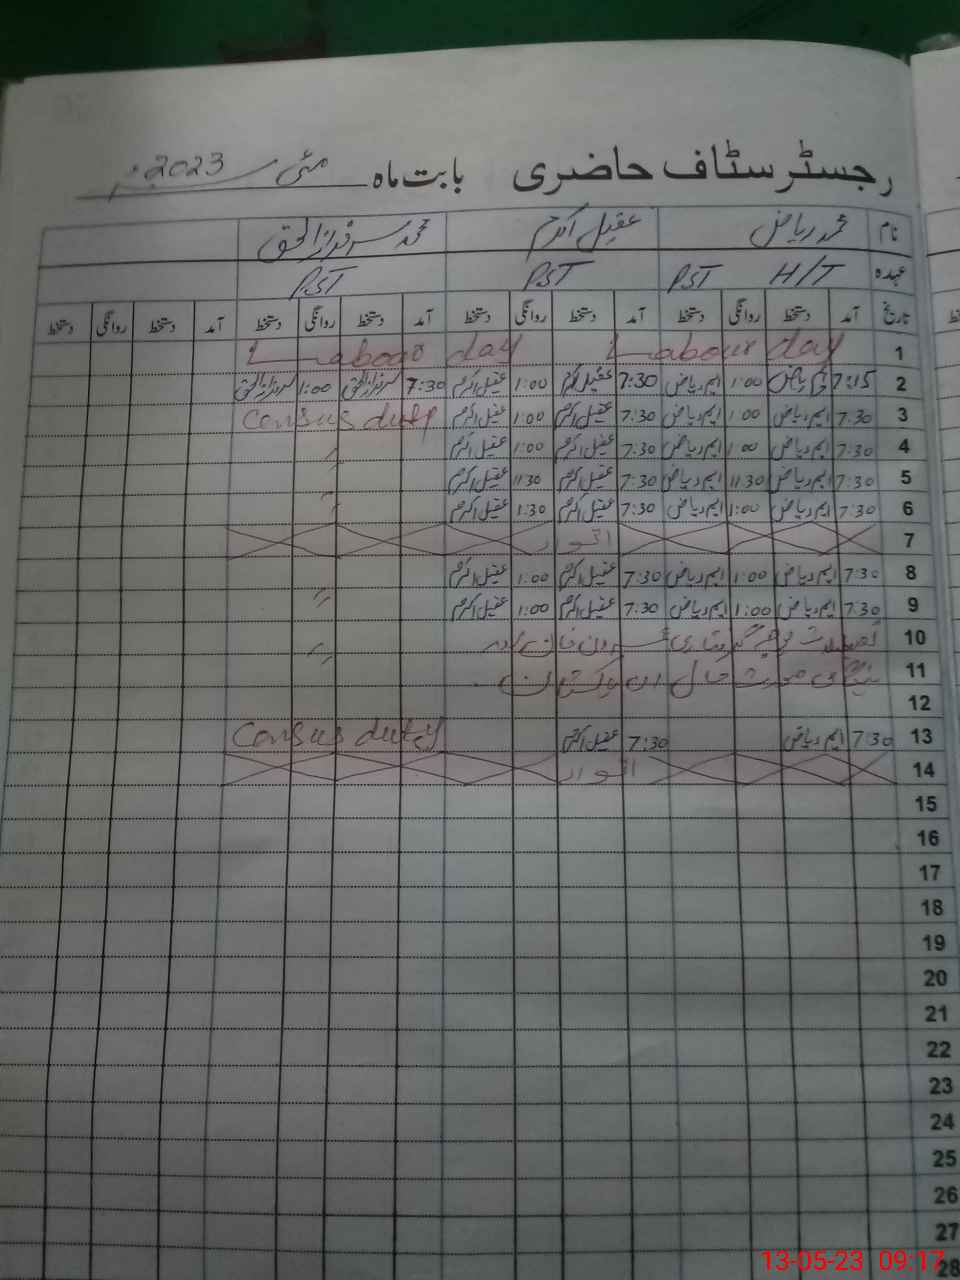 رجسٹر سٹاف حاضری بابت ماہ مئی 2023ء
نام محمد ریاض عقیل اکرم محمد سرفراز الحق
عہدہ H/T PST PST PST
تاریخ آمد دستخط روانگی دستخط آمد دستخط روانگی دستخط آمد دستخط روانگی دستخط آمد دستخط روانگی دستخط
1 Labour day Labour day
2 7:15 1:00 ایم ریاض 7:30 عقیل اکرم 1:00 عقیل اکرم 7:30 سرفراز الحق 1:00 سرفراز الحق
3 7:30 ایم ریاض 1:00 ایم ریاض 7:30 عقیل اکرم 1:00 عقیل اکرم Census duty
4 7:30 ایم ریاض 1:00 ایم ریاض 7:30 عقیل اکرم 1:00 عقیل اکرم "
5 7:30 ایم ریاض 11:30 ایم ریاض 7:30 عقیل اکرم 11:30 عقیل اکرم "
6 7:30 ایم ریاض 1:00 ایم ریاض 7:30 عقیل اکرم 1:30 عقیل اکرم "
7 اتوار
8 7:30 ایم ریاض 1:00 ایم ریاض 7:30 عقیل اکرم 1:00 عقیل اکرم "
9 7:30 ایم ریاض 1:00 ایم ریاض 7:30 عقیل اکرم 1:00 عقیل اکرم "
10 گرفتاری عمران خان اور "
11 صورت حال
12
13 7:30 ایم ریاض 7:30 عقیل اکرم Census duty
14 اتوار
15
16
17
18
19
20
21
22
23
24
25
26
27
28
13-05-23 09:17